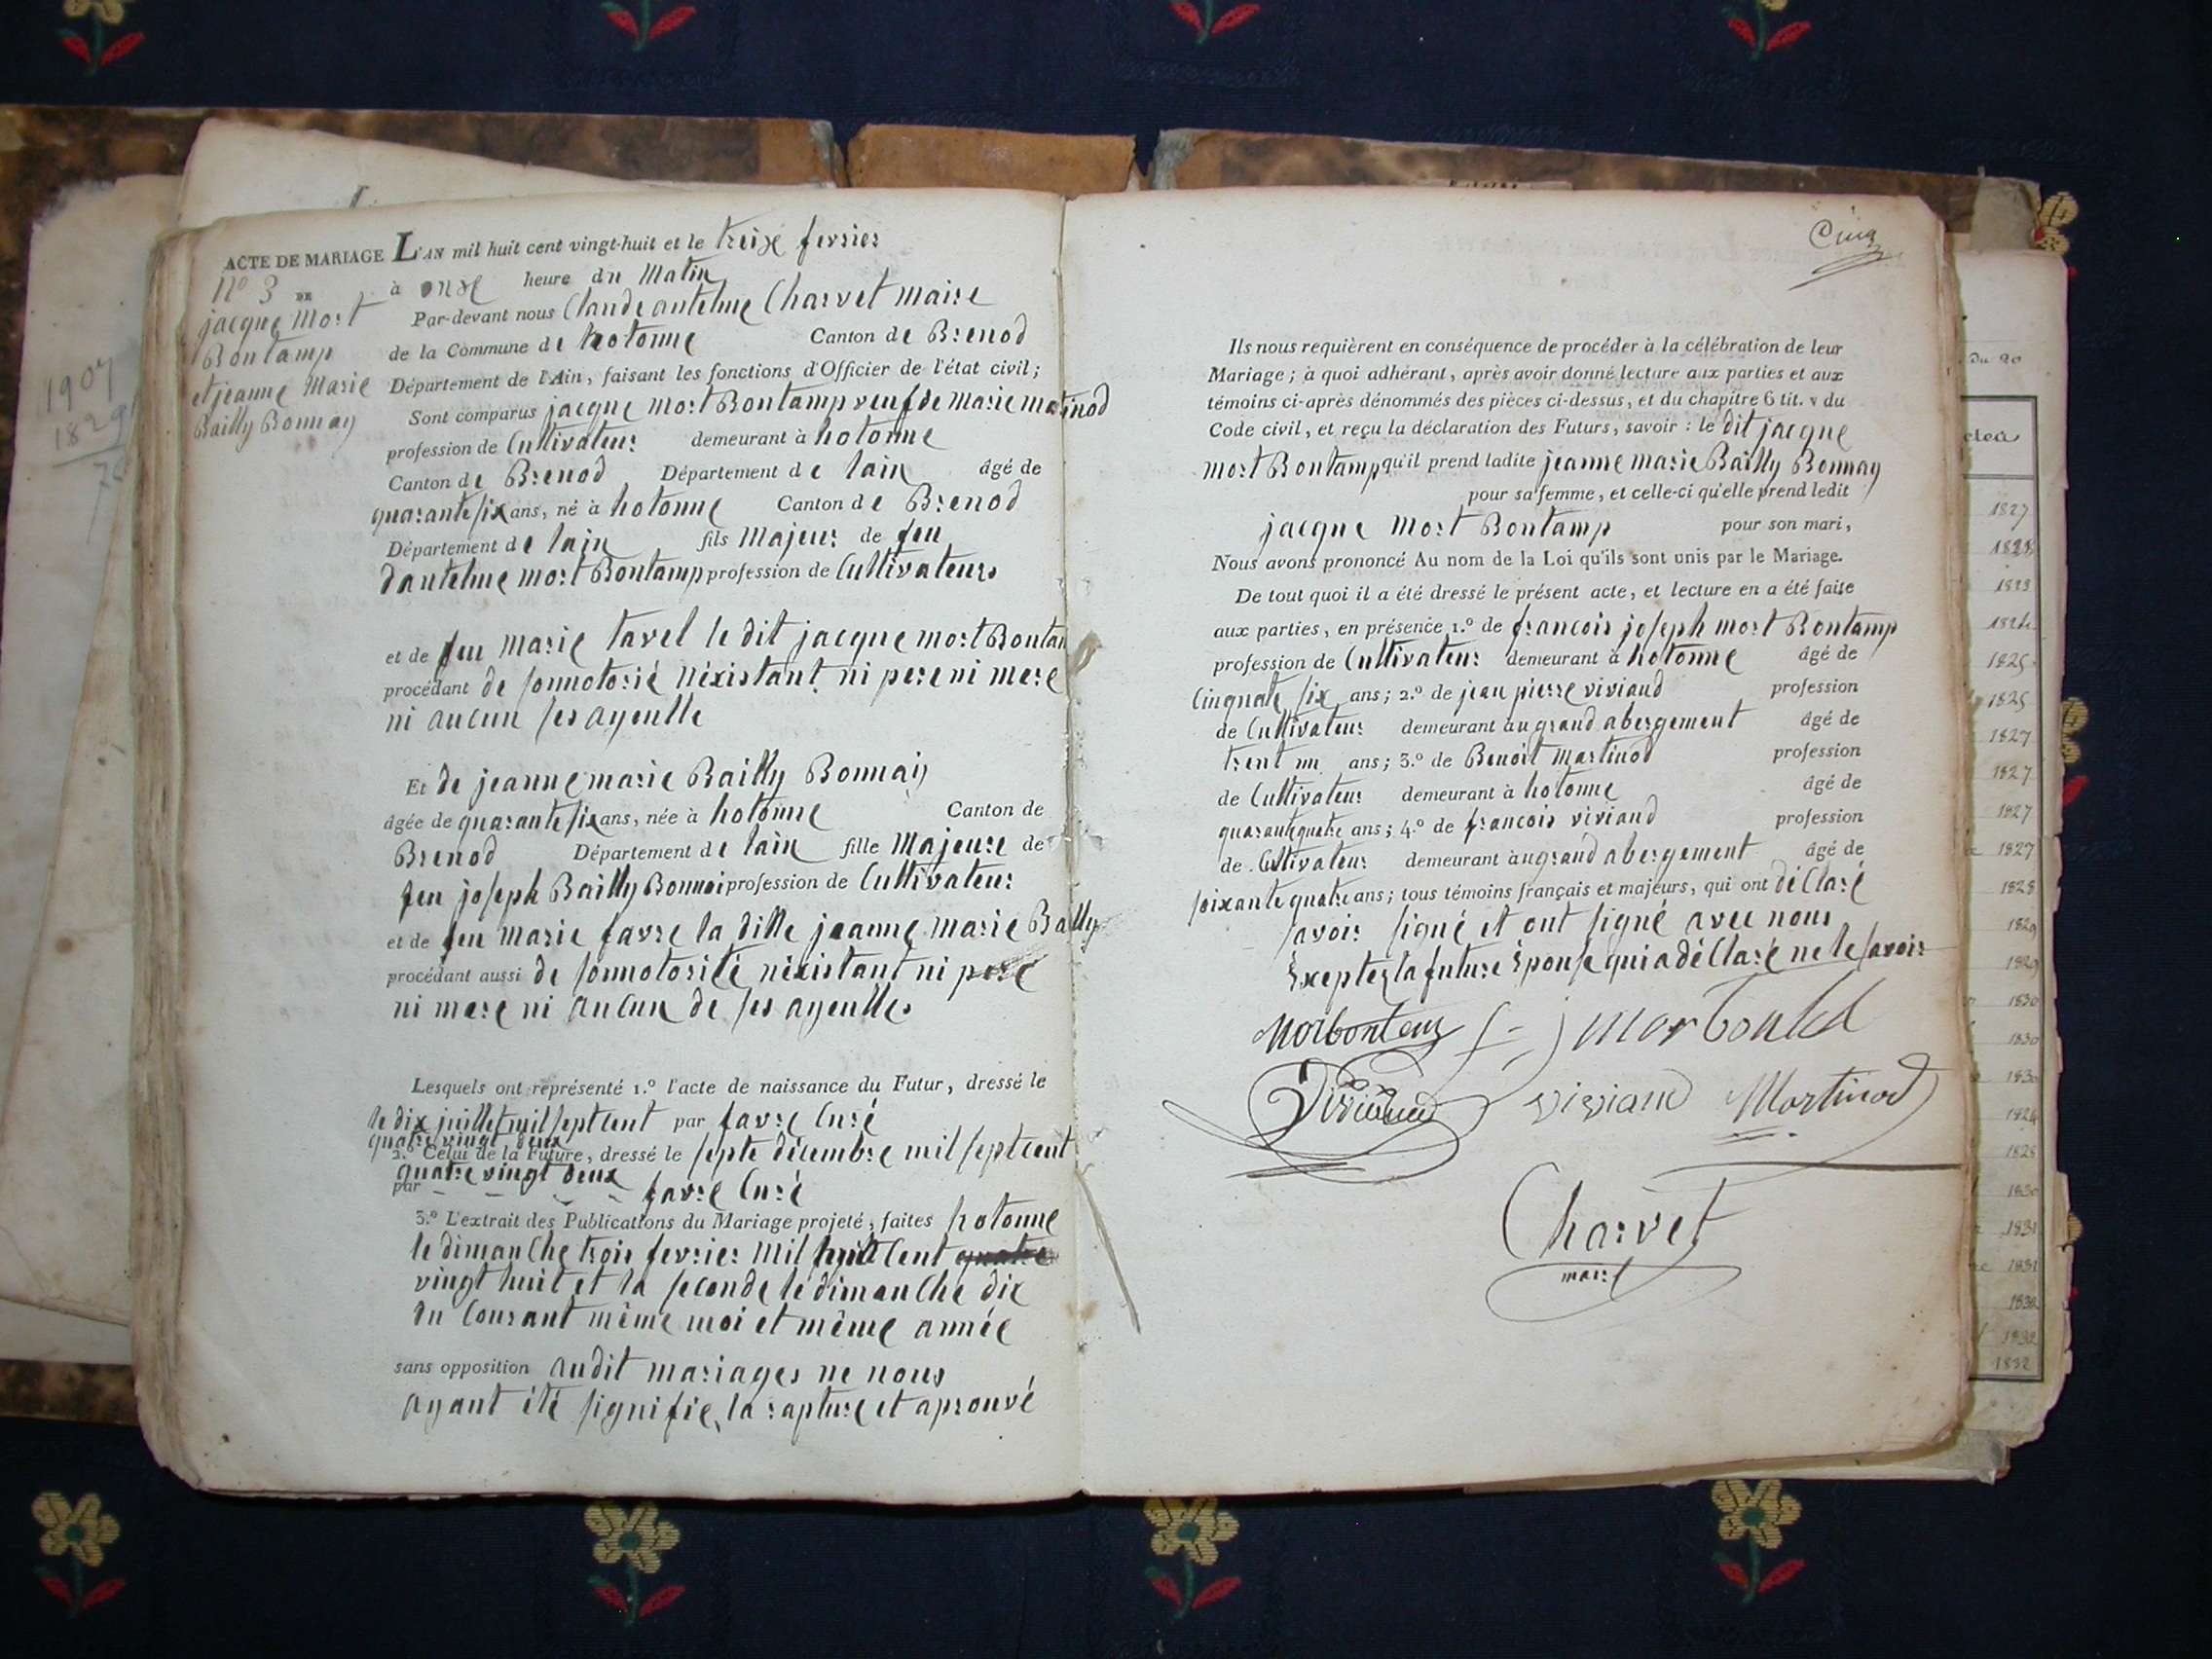 ACTE DE MARIAGE L'AN mil huit cent vingt-huit et le treize fevrier
N° 3 DE
jacque Mort
Bontamp
et jeanne Marie
Bailly Bonnay
à onze heure du Matin
Par-devant nous Claude antelme Charvet maire
de la Commune de hotonne Canton de Brenod
Département de l'Ain, faisant les fonctions d'Officier de l'état civil;
Sont comparus jacque mort Bontamp veuf de marie martinod
profession de Cultivateur demeurant à hotonne
Canton de Brenod Département de lain âgé de
quarante six ans, né à hotonne Canton de Brenod
Département de lain fils Majeur de feu
dantelme mort Bontamp profession de Cultivateurs
et de feu marie tavel le dit jacque mort Bontam
procédant de sonnotorié néxistant ni pere ni mere
ni aucun ses ayeulle
Et de jeanne marie Bailly Bonnay
âgée de quarante six ans, née à hotonne Canton de
Brenod Département de lain fille Majeure de
feu joseph Bailly Bonnai profession de Cultivateur
et de feu marie favre la ditte jeanne marie Bailly
procédant aussi de sonnotorité néxistant ni pere
ni mere ni aucun de ses ayeulles
Lesquels ont représenté 1.° l'acte de naissance du Futur, dressé le
le dix juillet mil sept cent par favre Curé
quatre vingt deux
2.° Celui de la Future, dressé le septe décembre mil sept cent
quatre vingt deux
par favre Curé
3.° L'extrait des Publications du Mariage projeté, faites hotonne
le dimanche trois fevrier mil huit Cent quatre
vingt huit et la seconde le dimanche dix
du Courant même moi et même année
sans opposition audit mariages ne nous
ayant été signifie, la rapture et aprouvé
Cinq
Ils nous requièrent en conséquence de procéder à la célébration de leur
Mariage; à quoi adhérant, après avoir donné lecture aux parties et aux
témoins ci-après dénommés des pièces ci-dessus, et du chapitre 6 tit. v du
Code civil, et reçu la déclaration des Futurs, savoir : le dit jacque
mort Bontamp qu'il prend ladite jeanne marie Bailly Bonnay
pour sa femme, et celle-ci qu'elle prend ledit
jacque Mort Bontamp pour son mari,
Nous avons prononcé Au nom de la Loi qu'ils sont unis par le Mariage.
De tout quoi il a été dressé le présent acte, et lecture en a été faite
aux parties, en présence 1.° de francois joseph mort Bontamp
profession de Cultivateur demeurant à hotonne âgé de
Cinquate six ans; 2.° de jean pierre viviand profession
de Cultivateur demeurant au grand abergement âgé de
trent un ans; 3.° de Benoit Martinod profession
de Cultivateur demeurant à hotonne âgé de
quarantequatre ans; 4.° de francois viviand profession
de Cultivateur demeurant à au grand abergement âgé de
soixante quatre ans; tous témoins français et majeurs, qui ont déClaré
savoir signé et ont signé avec nous
Exceptez la future Epouse qui a déClaré ne le savoir
Morbontem f - j morbonted
Viviand viviand Martinod
Charvet
maire
1907
1829
du 20
1827
1828
1823
1824
1825
1825
1827
1827
1827
1827
1828
1829
1829
1830
1830
1830
1824
1828
1830
1831
1831
1832
1832
1832